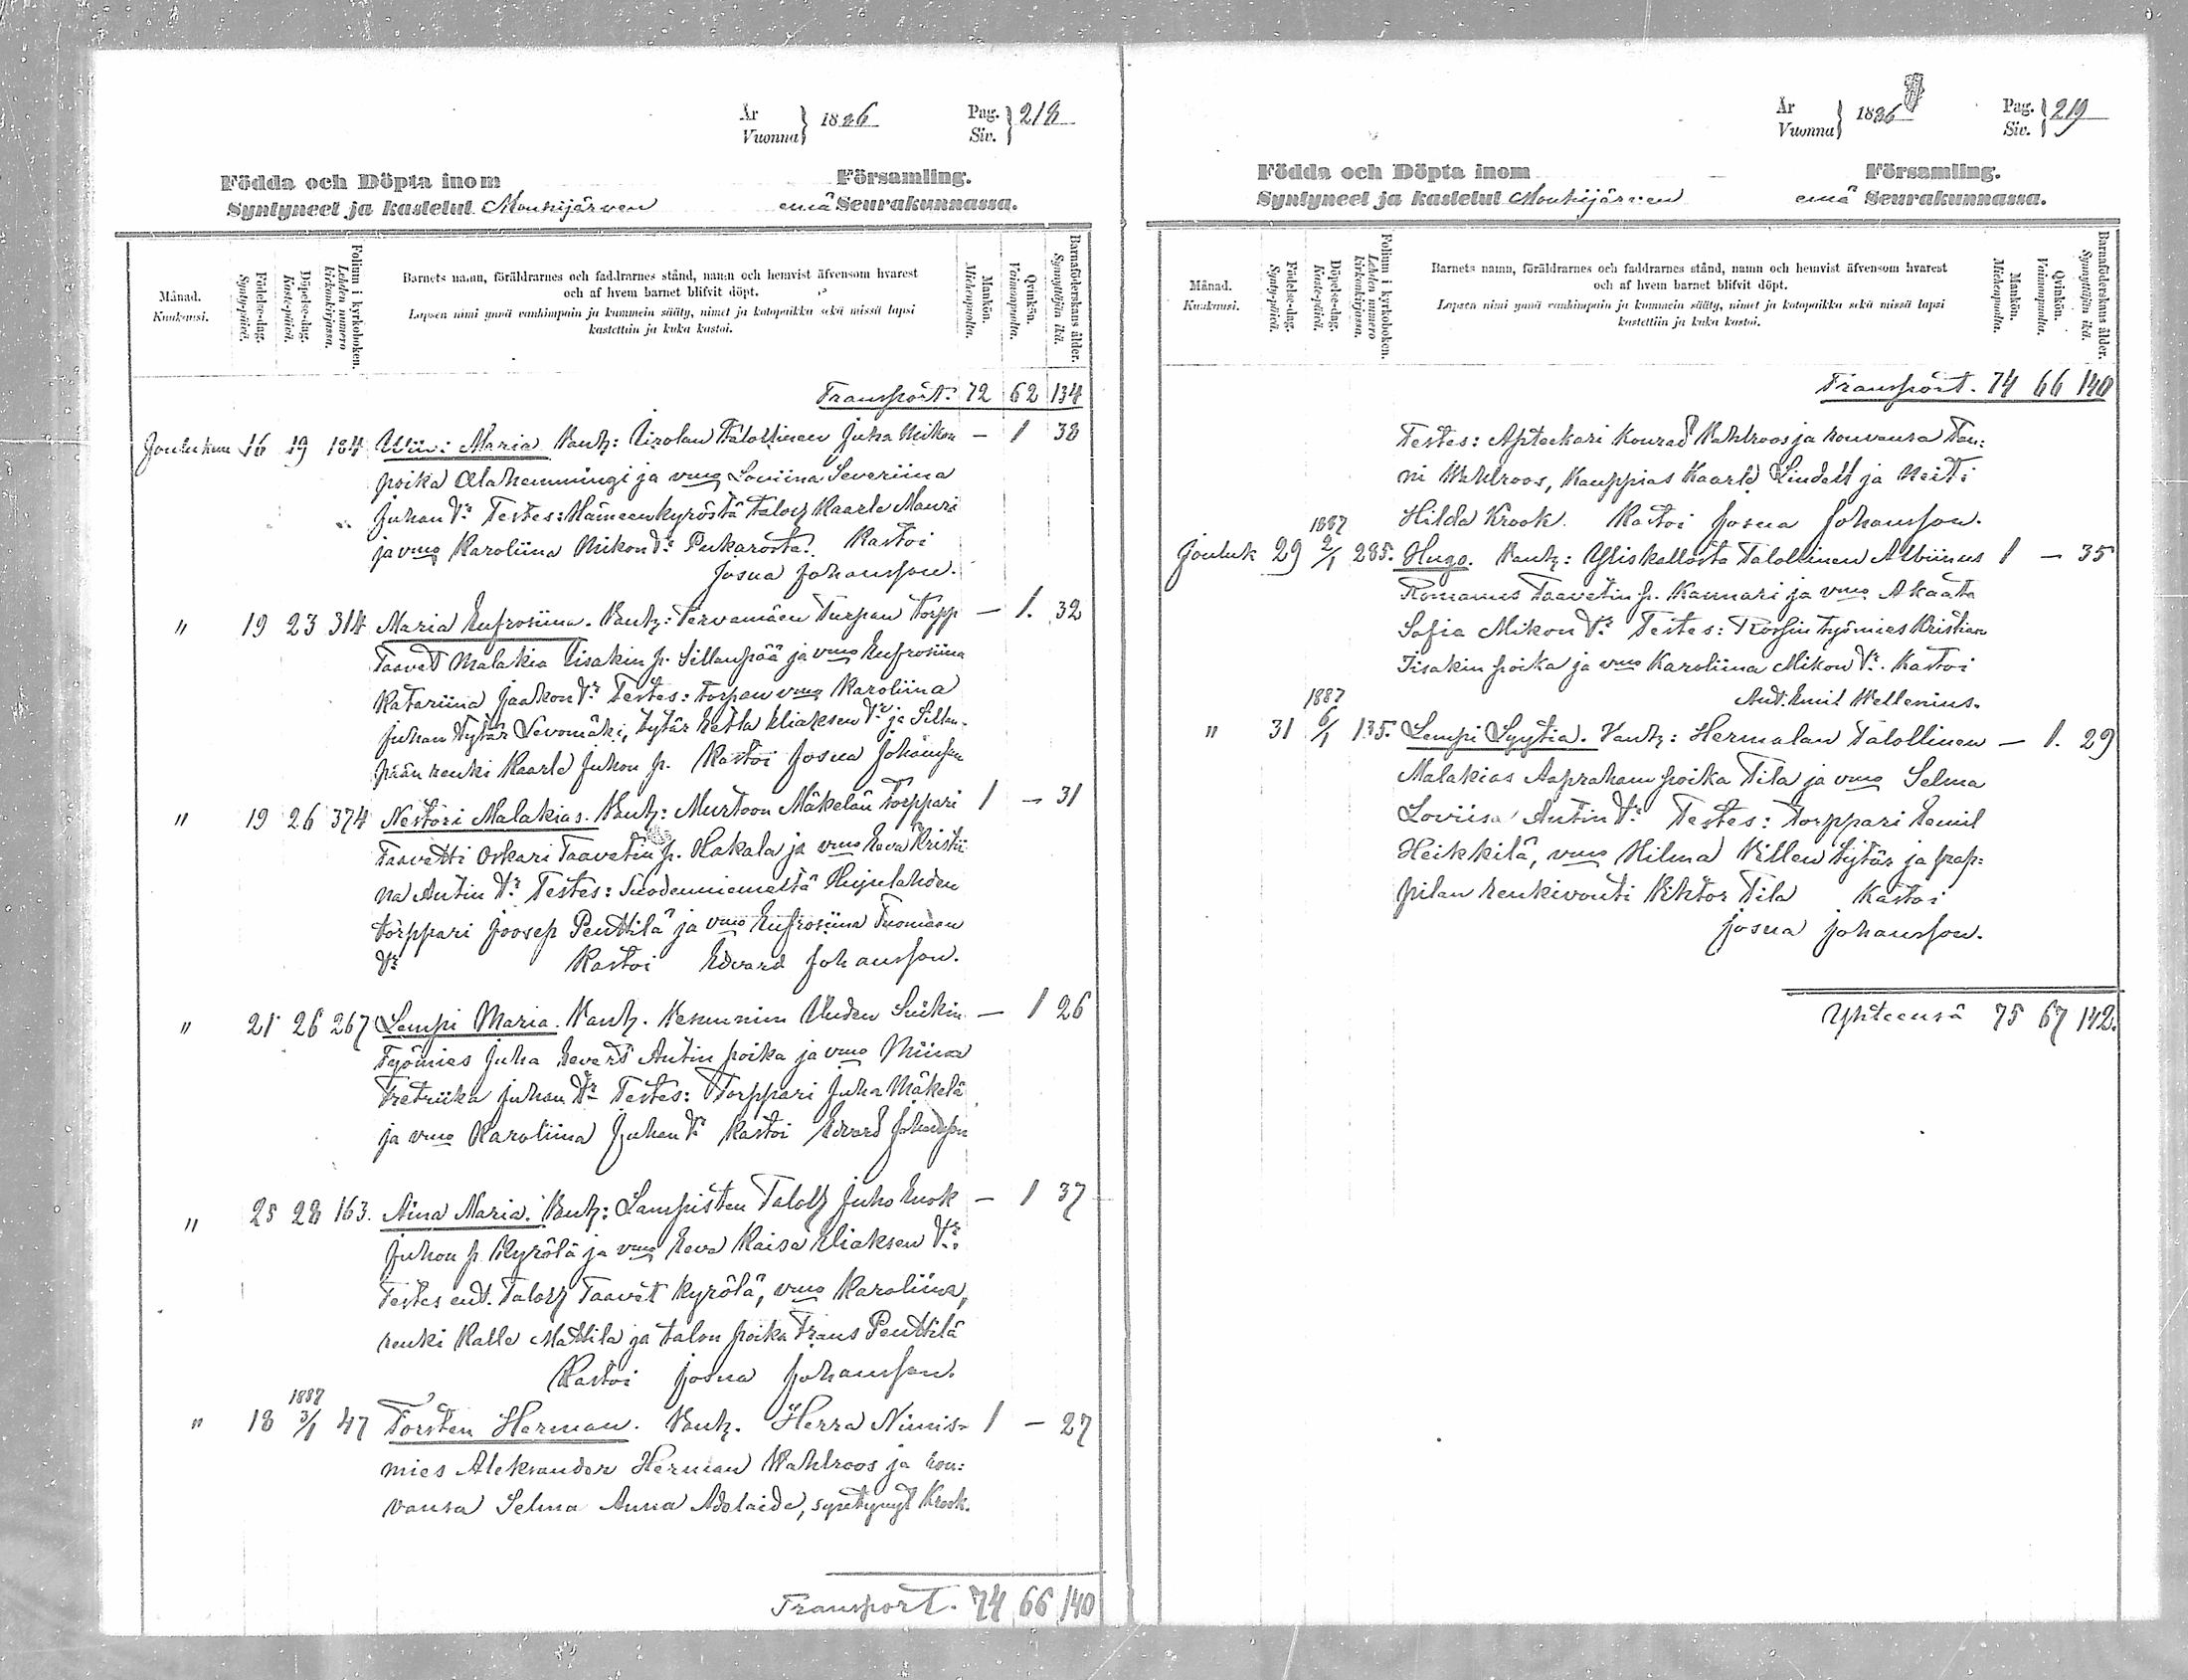 År
Vuonna } 1886 Pag.
Siv. } 218
Födda och Döpta inom Församling.
Syntyneet ja kastetut Mouhijärven emä Seurakunnassa.
Månad.
Kuukausi.
Födelse-dag.
Synty-päivä.
Döpelse-dag.
Kaste-päivä.
Folium i kyrkoboken.
Lehden numero
kirkonkirjassa.
Barnets namn, föräldrarnes och faddrarnes stånd, namn och hemvist äfvensom hvarest
och af hvem barnet blifvit döpt.
Lapsen nimi ynnä vanhimpain ja kummein sääty, nimet ja kotopaikka sekä missä lapsi
kastettiin ja kuka kastoi.
Mankön.
Miehenpuolta.
Qvinkön.
Vaimonpuolta.
Barnaföderskans ålder.
Synnyttäjän ikä.
Transport. 72 62 134
Joulukuu 16 19 184 Maria Talollinen Juha Mikon — 1 38
poika Alahemmingi ja vmo Loviina Severiina
Juhan Tr Testes: Hämeenkyröstä Kaarle Mauri
ja vmo Karoliina Mikon Tr Kastoi
Josua Johansson.
" 19 23 314 Maria Eufrosiina. Vanh: Tervamäen Turpan torpp — 1. 32
Taavet Malakia Iisakin p. Sillanpää ja vmo Eufrosiina
Katariina Jaakon Tr Testes: torpan vmo Karoliina
Juhan tytär Levomäki, tytär Eliaksen Tr ja Sillan-
pään renki Kaarle Juhon p. Kastoi Josua Johansson
" 19 26 374 Nestori Malakias. Vanh: Murtoon Mäkelän torppari 1 — 31
Taavetti Oskari Taavetin p. Hakala ja vmo Eeva Kristii
na Antin Tr Testes: Suodenniemeltä Hujulahden
torppari Joosep Penttilä ja vmo Eufrosiina Tuomaan
Tr Kastoi Edvard Johansson.
" 21 26 267 Lempi Maria. Vanh. Uuden — 1 26
Työmies Juha Evert Antin poika ja vmo Miina
Fretriika Juhan Tr Testes: Torppari Juha Mäkelä
ja vmo Karoliina Juhan Tr Kastoi Edvard Johansson
" 25 28 163. Aina Maria. Vanh: Lampisten Juho Enok — 1 37
Juhon p Kyrölä ja vmo Eeva Kaisa Eliaksen Tr:
Testes ent. Taavet Kyrölä, vmo Karoliina,
renki Kalle Mattila ja talon poika Frans Penttilä
Kastoi Josua Johansson.
1887
" 18 3/1 47 Torsten Herman. Vanh. Herra Nimis- 1 — 27
mies Aleksander Herman Wahlroos ja rou:
vansa Selma Anna Adelaide, syntynyt Krook.
Transport. 74 66 140
År
Vuonna } 1886 Pag.
Siv. } 219
Födda och Döpta inom Församling.
Syntyneet ja kastetut Mouhijärven emä Seurakunnassa.
Månad.
Kuukausi.
Födelse-dag.
Synty-päivä.
Döpelse-dag.
Kaste-päivä.
Folium i kyrkoboken.
Lehden numero
kirkonkirjassa.
Barnets namn, föräldrarnes och faddrarnes stånd, namn och hemvist äfvensom hvarest
och af hvem barnet blifvit döpt.
Lapsen nimi ynnä vanhimpain ja kummein sääty, nimet ja kotopaikka sekä missä lapsi
kastettiin ja kuka kastoi.
Mankön.
Miehenpuolta.
Qvinkön.
Vaimonpuolta.
Barnaföderskans ålder.
Synnyttäjän ikä.
Transport. 74 66 140
Testes: Apteekari Konrad Wahlroos ja rouvansa Fan:
ni Wahlroos, Kauppias Kaarle Lindell ja Neiti
Hilda Krook. Kastoi Josua Johansson.
1887
Jouluk 29 2/1 285. Hugo. Vanh: Yliskallosta Talollinen Albiinus 1 — 35
Romanus Taavetin p. Kannari ja vmo Akaata
Sofia Mikon Tr Testes: työmies Kristian
Iisakin poika ja vmo Karoliina Mikon Tr. Kastoi
And. Emil Wellenius.
1887
" 31 6/1 135. Lempi Lyytia. Vanh: Hermalan Talollinen — 1. 29
Malakias Aaprahamin poika Tila ja vmo Selma
Loviisa Antin Tr Testes: torppari Eemil
Heikkilä, vmo Hilma Villen tytär ja pap:
pilan renkivouti Vihtor Tila Kastoi
Josua Johansson.
Yhteensä 75 67 142.